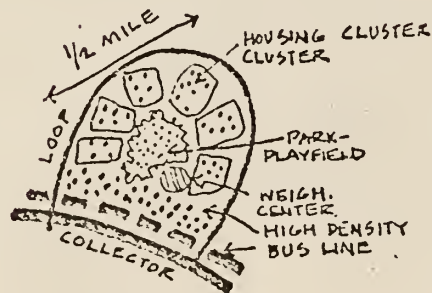 1/2 MILE
HOUSING CLUSTER
CLUSTER
LOOP
PARK-
PLAYFIELD
NEIGH.
CENTER
HIGH DENSITY
BUS LINE
COLLECTOR